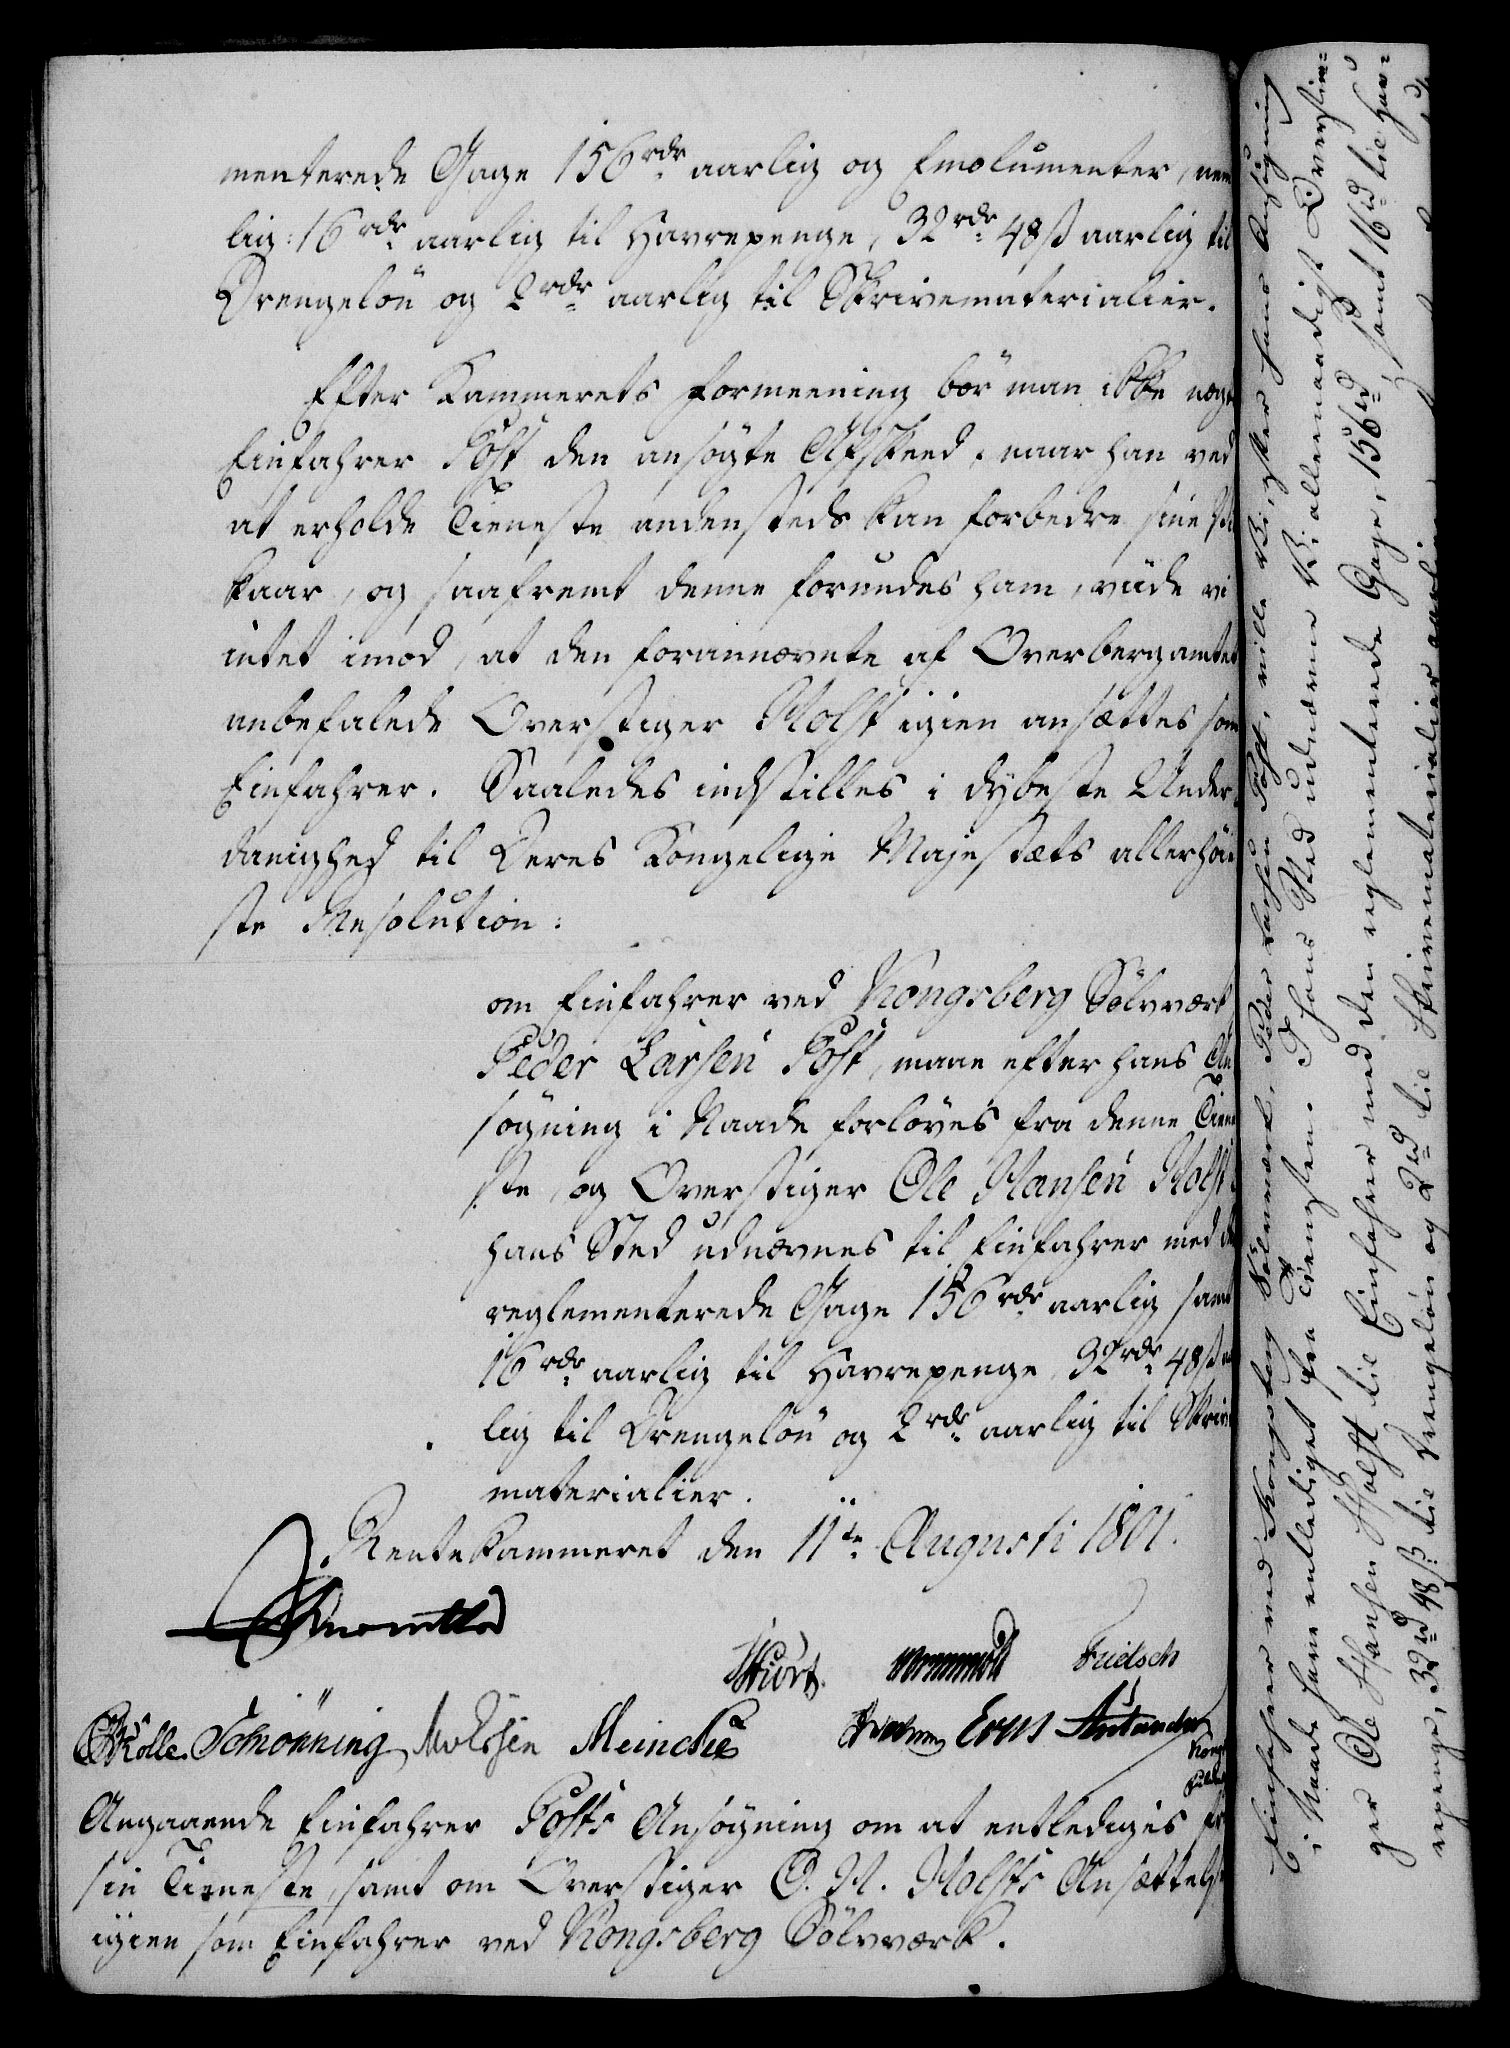 menterede Gage 156 rdr aarlig og Emolumenter, nem
lig: 16 rdr aarlig til Havrepenge, 32 rdr 48 ß aarlig til
Drengelön og 2 rdr aarlig til Skrivematerialier.
Efter Kammerets Formeening bör man ikke nægte
Einfahrer Post den ansögte Afskeed, naar han ved
at erholde Tieneste andensteds kan forbedre sine
kaar, og saafremt denne forundes ham, viide vi
intet imod, at den forannævnte af Overbergamtet
anbefalede Overstiger Holst igien ansættes som
Einfahrer. Saaledes indstilles i dybeste Under
danighed til Deres Kongelige Majestæts allerhöie
ste Resolution:
om Einfahrer ved Kongsberg Sölvværk
Peder Larsen Post, maae efter hans An
sögning i Naade forlöves fra denne Tiene
ste, og Overstiger Ole Hansen Holst i
hans Sted udnævnes til Einfahrer med den
reglementerede Gage 156 rdr aarlig samt
16 rdr aarlig til Havrepenge, 32 rdr 48 ß aar
lig til Drengelön og 2 rdr aarlig til Skrive
materialier.
Rentekammeret den 11te Augusti 1801.
Wiört. Fridsch
Kölle. Schiönning Meincke
Angaaende Einfahrer Posts Ansögning om at entlediges fra
sin Tieneste, samt om Overstiger O. H. Holsts Ansættelse
igien som Einfahrer ved Kongsberg Sölvværk.
Einfahrer ved Kongsberg Sölvværk, Peder Larsen Post, ville Vi, efter hans Ansögning
i Naade have entlediget fra Tienesten. I hans Sted udnævne Vi allernaadigst Oversti-
ger Ole Hansen Holst til Einfahrer med den reglementerede Gage, 156 rd, samt 16 rd til Hav-
repenge, 32 rd 48 ß til Drengelön og 2 rd til Skrivematerialier aarlig